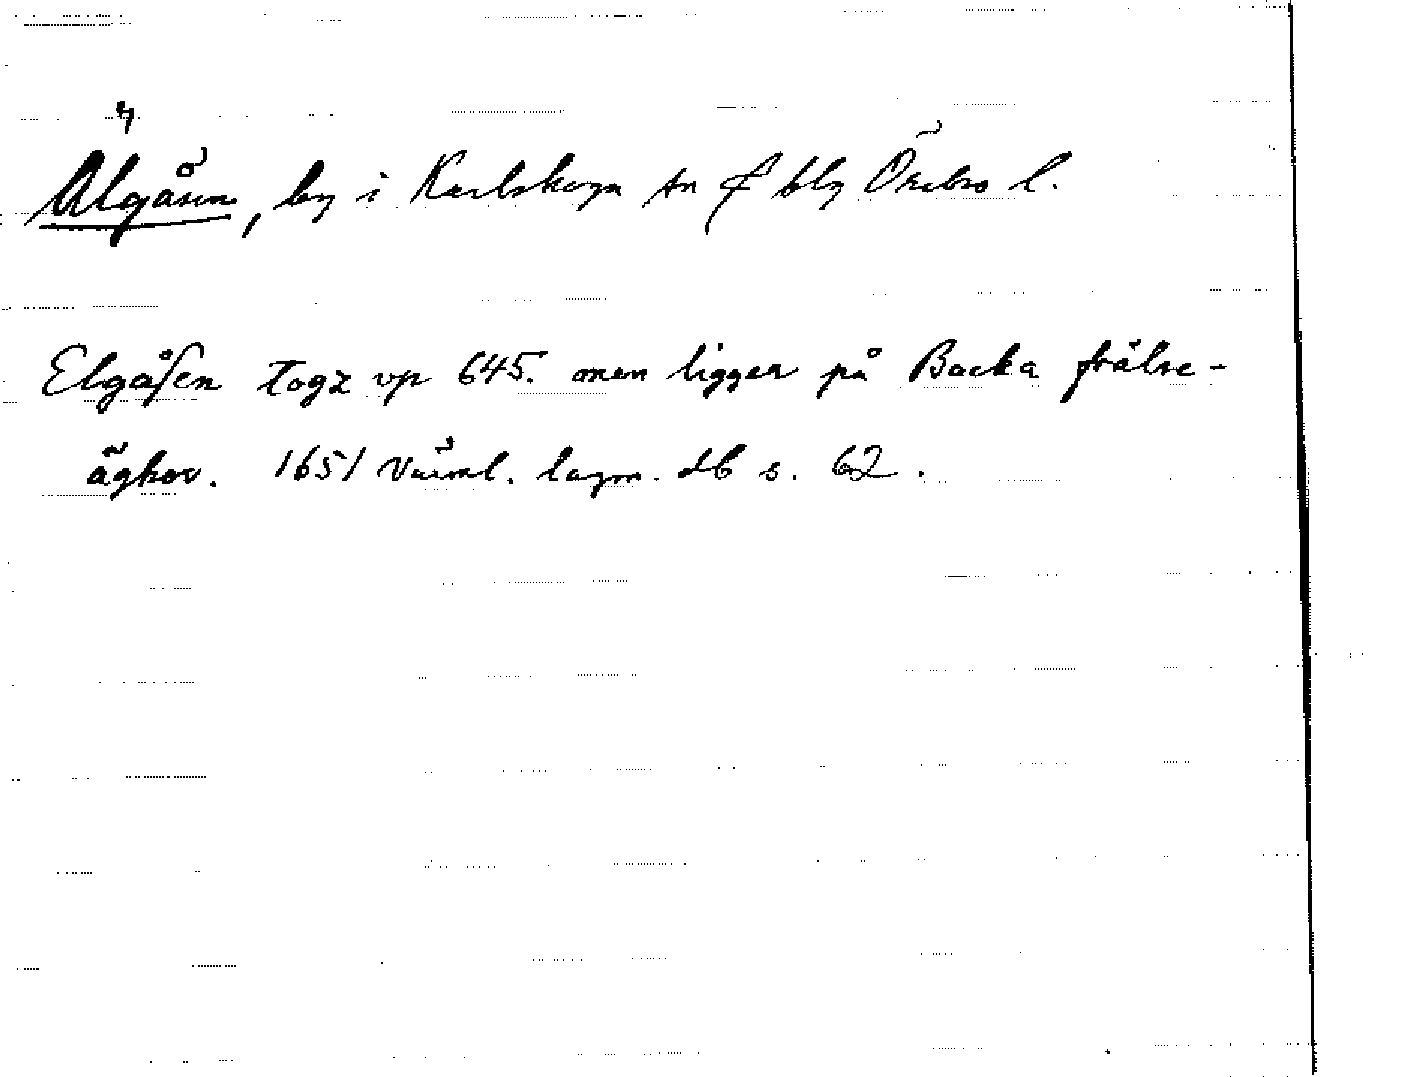 Älgåsen, by i Karlskoga sn o blg Örebro l.
Elgåsen togz vp 645. men ligger på Backa frälse-
äghor. 1651 Värml. lagm. db s. 62.